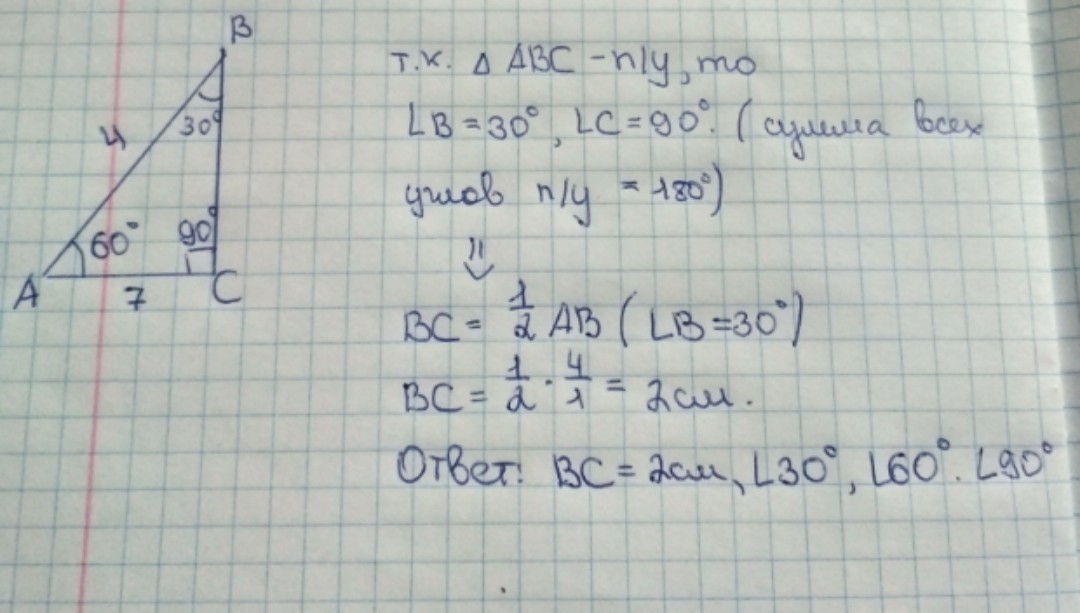 B
4
30°
60°
90°
A
7
C
т.к. Δ ABC - п/у, то
∠B = 30°, ∠C = 90°. (сумма всех
углов п/у = 180°)
⇓
BC = 1/2 AB (∠B = 30°)
BC = 1/2 · 4/1 = 2см.
Ответ: BC = 2см, ∠30°, ∠60°. ∠90°